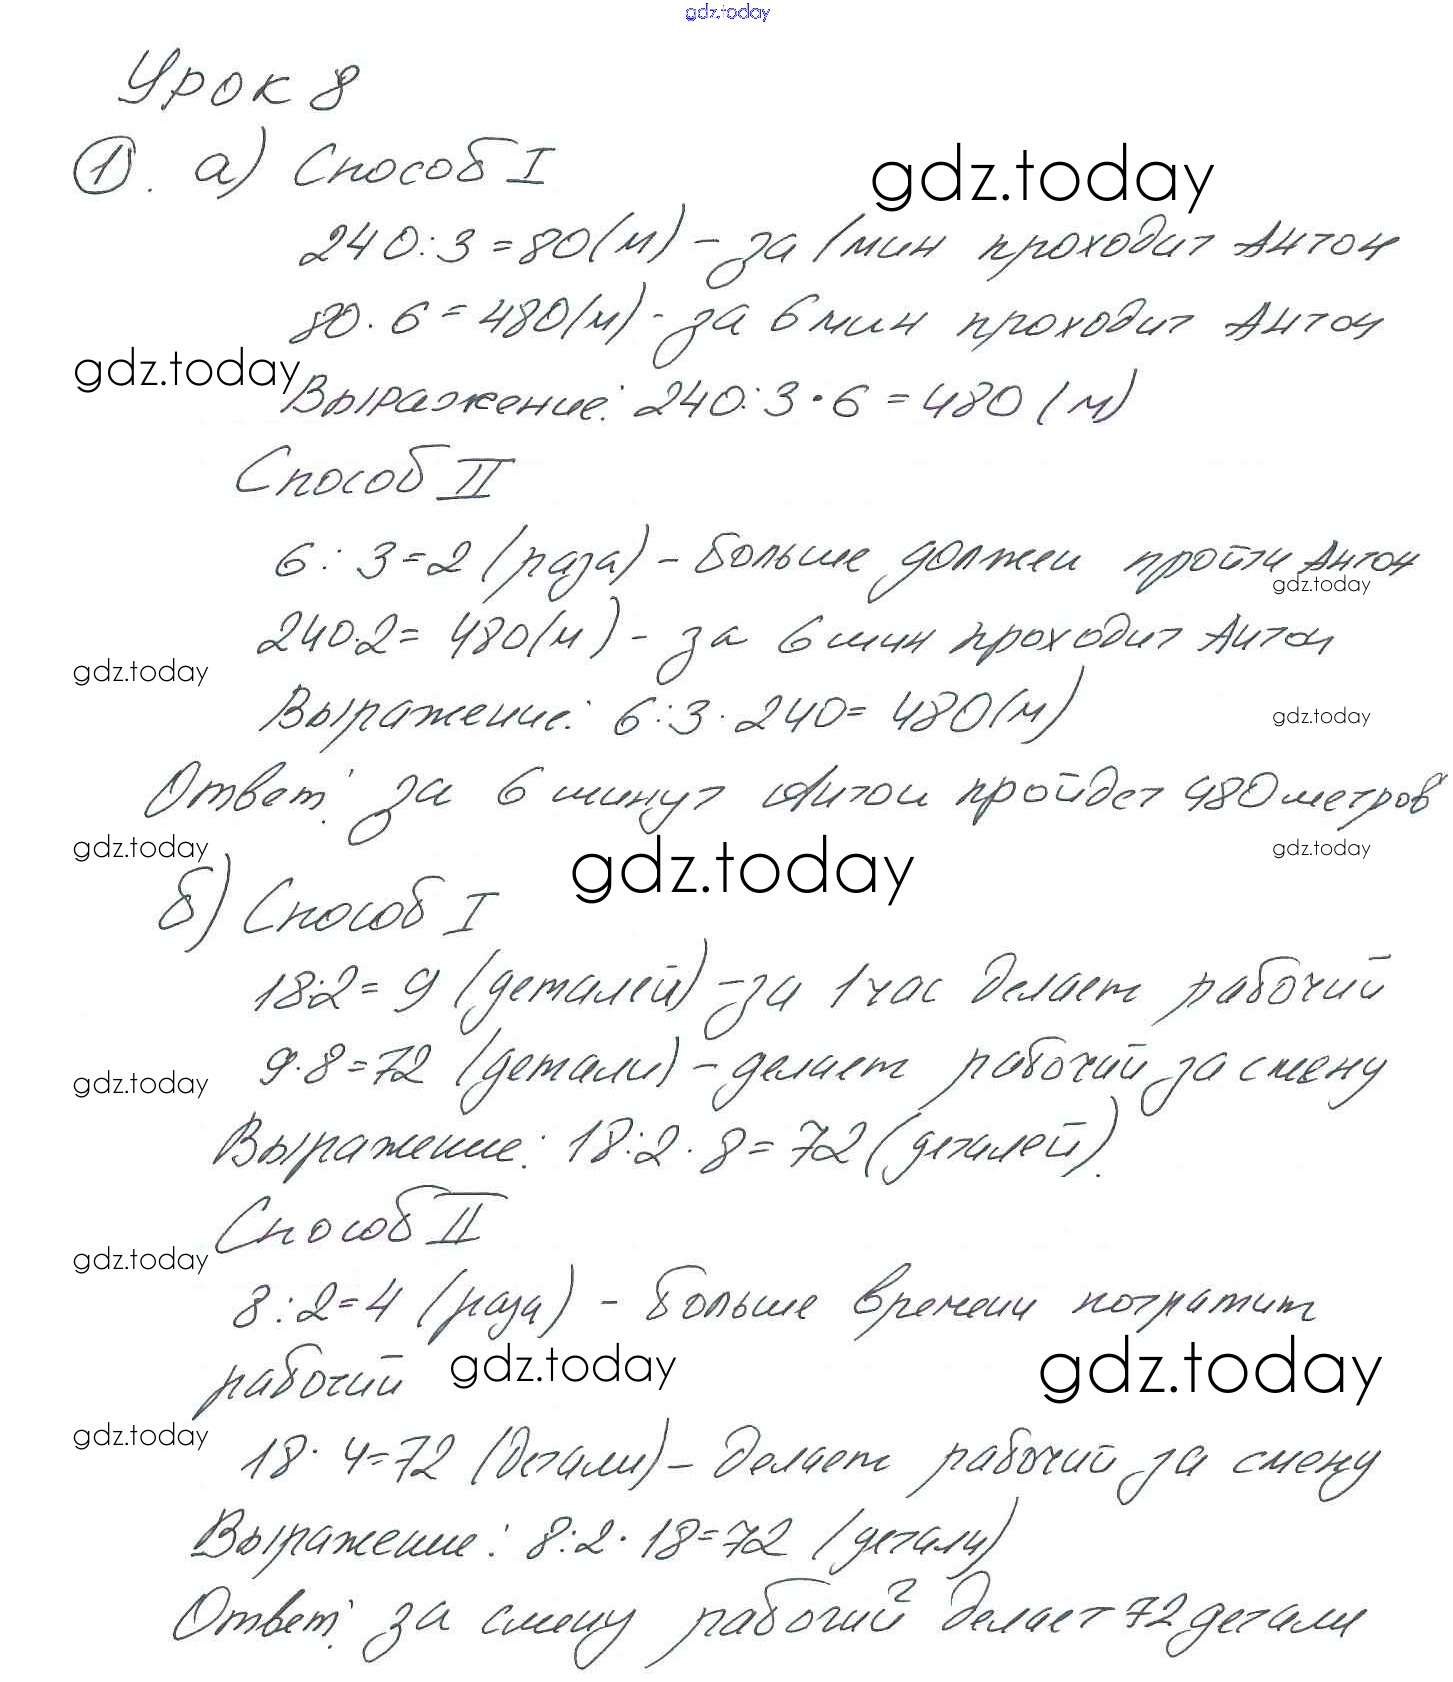 gdz.today
Урок 8
1. а) Способ I
gdz.today
240:3=80(м) - за 1мин проходит Антон
80·6=480(м) - за 6мин проходит Антон
gdz.today
Выражение: 240:3·6=480(м)
Способ II
6:3=2 (раза) - больше должен пройти Антон
gdz.today
240·2=480(м) - за 6мин проходит Антон
gdz.today
Выражение: 6:3·240=480(м)
gdz.today
Ответ: за 6 минут Антон пройдет 480метров
gdz.today
gdz.today
gdz.today
б) Способ I
18:2=9 (деталей) - за 1час делает рабочий
9·8=72 (детали) - делает рабочий за смену
gdz.today
Выражение: 18:2·8=72 (деталей).
Способ II
gdz.today
8:2=4 (раза) - больше времени потратит
рабочий
gdz.today
gdz.today
gdz.today
18·4=72 (детали) - делает рабочий за смену
Выражение: 8:2·18=72 (детали)
Ответ: за смену рабочий делает 72детали